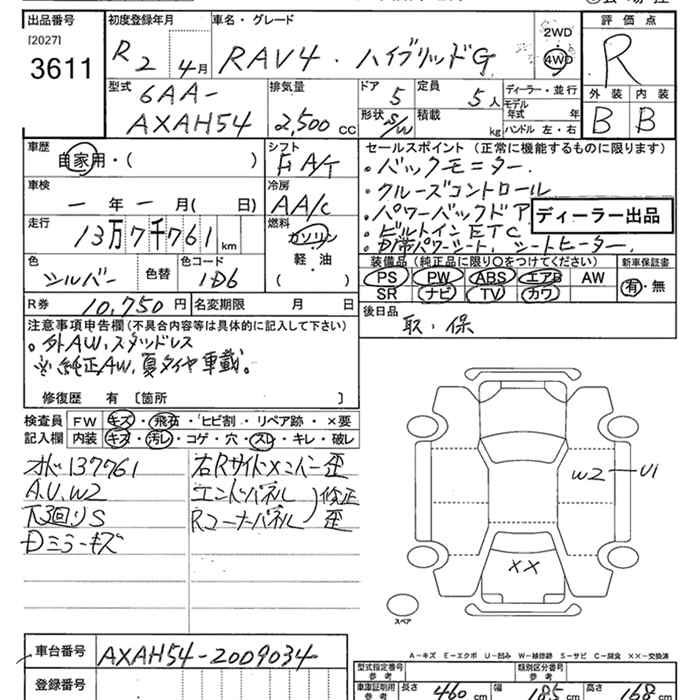 出品番号 初度登録年月 車名・グレード 評価点
[2027]
3611
R2 4月 RAV4・ハイブリッドG 2WD 4WD R
型式 排気量 ドア 定員 ディーラー・並行 外装 内装
6AA-
AXAH54 2,500 cc 5 5人 モデル年式 年 B B
形状 S/W 積載 kg ハンドル 左・右
車歴 シフト セールスポイント(正常に機能するものに限ります)
自家用・( ) F A/T ・バックモニター.
車検 冷房 ・クルーズコントロール
一年一月( 日) AA/C ・パワーバックドア ディーラー出品
走行 燃料 ・ビルトインETC
13万7千761km ガソリン ・D席パワーシート、シートヒーター.
軽・油
( )
色 色替 色コード 装備品(純正品に限り○をつけてください) 新車保証書
シルバー 1D6 PS PW ABS エアB AW 有・無
SR ナビ TV カワ
R券 10,750円 名変期限 月 日 後日品
取・保
注意事項申告欄(不具合内容等は具体的に記入して下さい)
○外AW、スタッドレス
※純正AW、夏タイヤ車載。
修復歴 有 [箇所 ]
検査員 FW キズ・飛石・ヒビ割・リペア跡・×要
記入欄 内装 キズ・汚れ・コゲ・穴・スレ・キレ・破レ
オド137761 右Rサイドメンバー歪
A.U.W2 エンドパネル 修正
下回りS Rコーナーパネル 歪
Dミラーキズ
W2 U1
XX
スペア
A-キズ E-エクボ U-凹み W-補修跡 S-サビ C-腐食 XX-交換済
車台番号 AXAH54-2009034
登録番号
型式指定番号 参考 類別区分番号 参考
車庫証明用 参考 長さ 460cm 幅 185cm 高さ 168cm